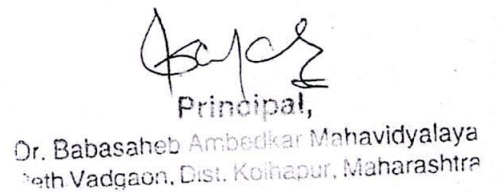 Principal,
Dr. Babasaheb Ambedkar Mahavidyalaya
Peth Vadgaon, Dist. Kolhapur, Maharashtra